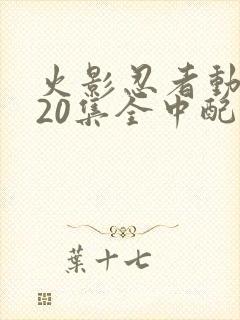 火影忍者動
20集全中配
葉十七